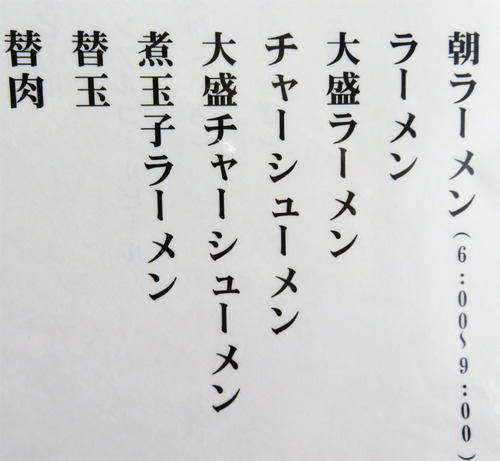 朝ラーメン(6:00〜9:00)
ラーメン
大盛ラーメン
チャーシューメン
大盛チャーシューメン
煮玉子ラーメン
替玉
替肉